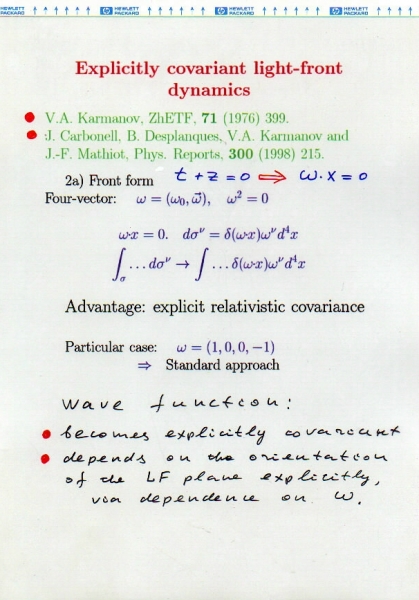 HEWLETT PACKARD hp HEWLETT PACKARD hp HEWLETT PACKARD hp HEWLETT PACKARD
Explicitly covariant light-front
dynamics
V.A. Karmanov, ZhETF, 71 (1976) 399.
J. Carbonell, B. Desplanques, V.A. Karmanov and
J.-F. Mathiot, Phys. Reports, 300 (1998) 215.
2a) Front form t + z = 0 ⇒ ω · x = 0
Four-vector: ω = (ω₀, ω⃗), ω² = 0
ω·x = 0. dσ^ν = δ(ω·x)ω^ν d⁴x
∫_σ ... dσ^ν → ∫ ... δ(ω·x)ω^ν d⁴x
Advantage: explicit relativistic covariance
Particular case: ω = (1, 0, 0, −1)
⇒ Standard approach
Wave function:
becomes explicitly covariant
depends on the orientation
of the LF plane explicitly,
via dependence on ω.